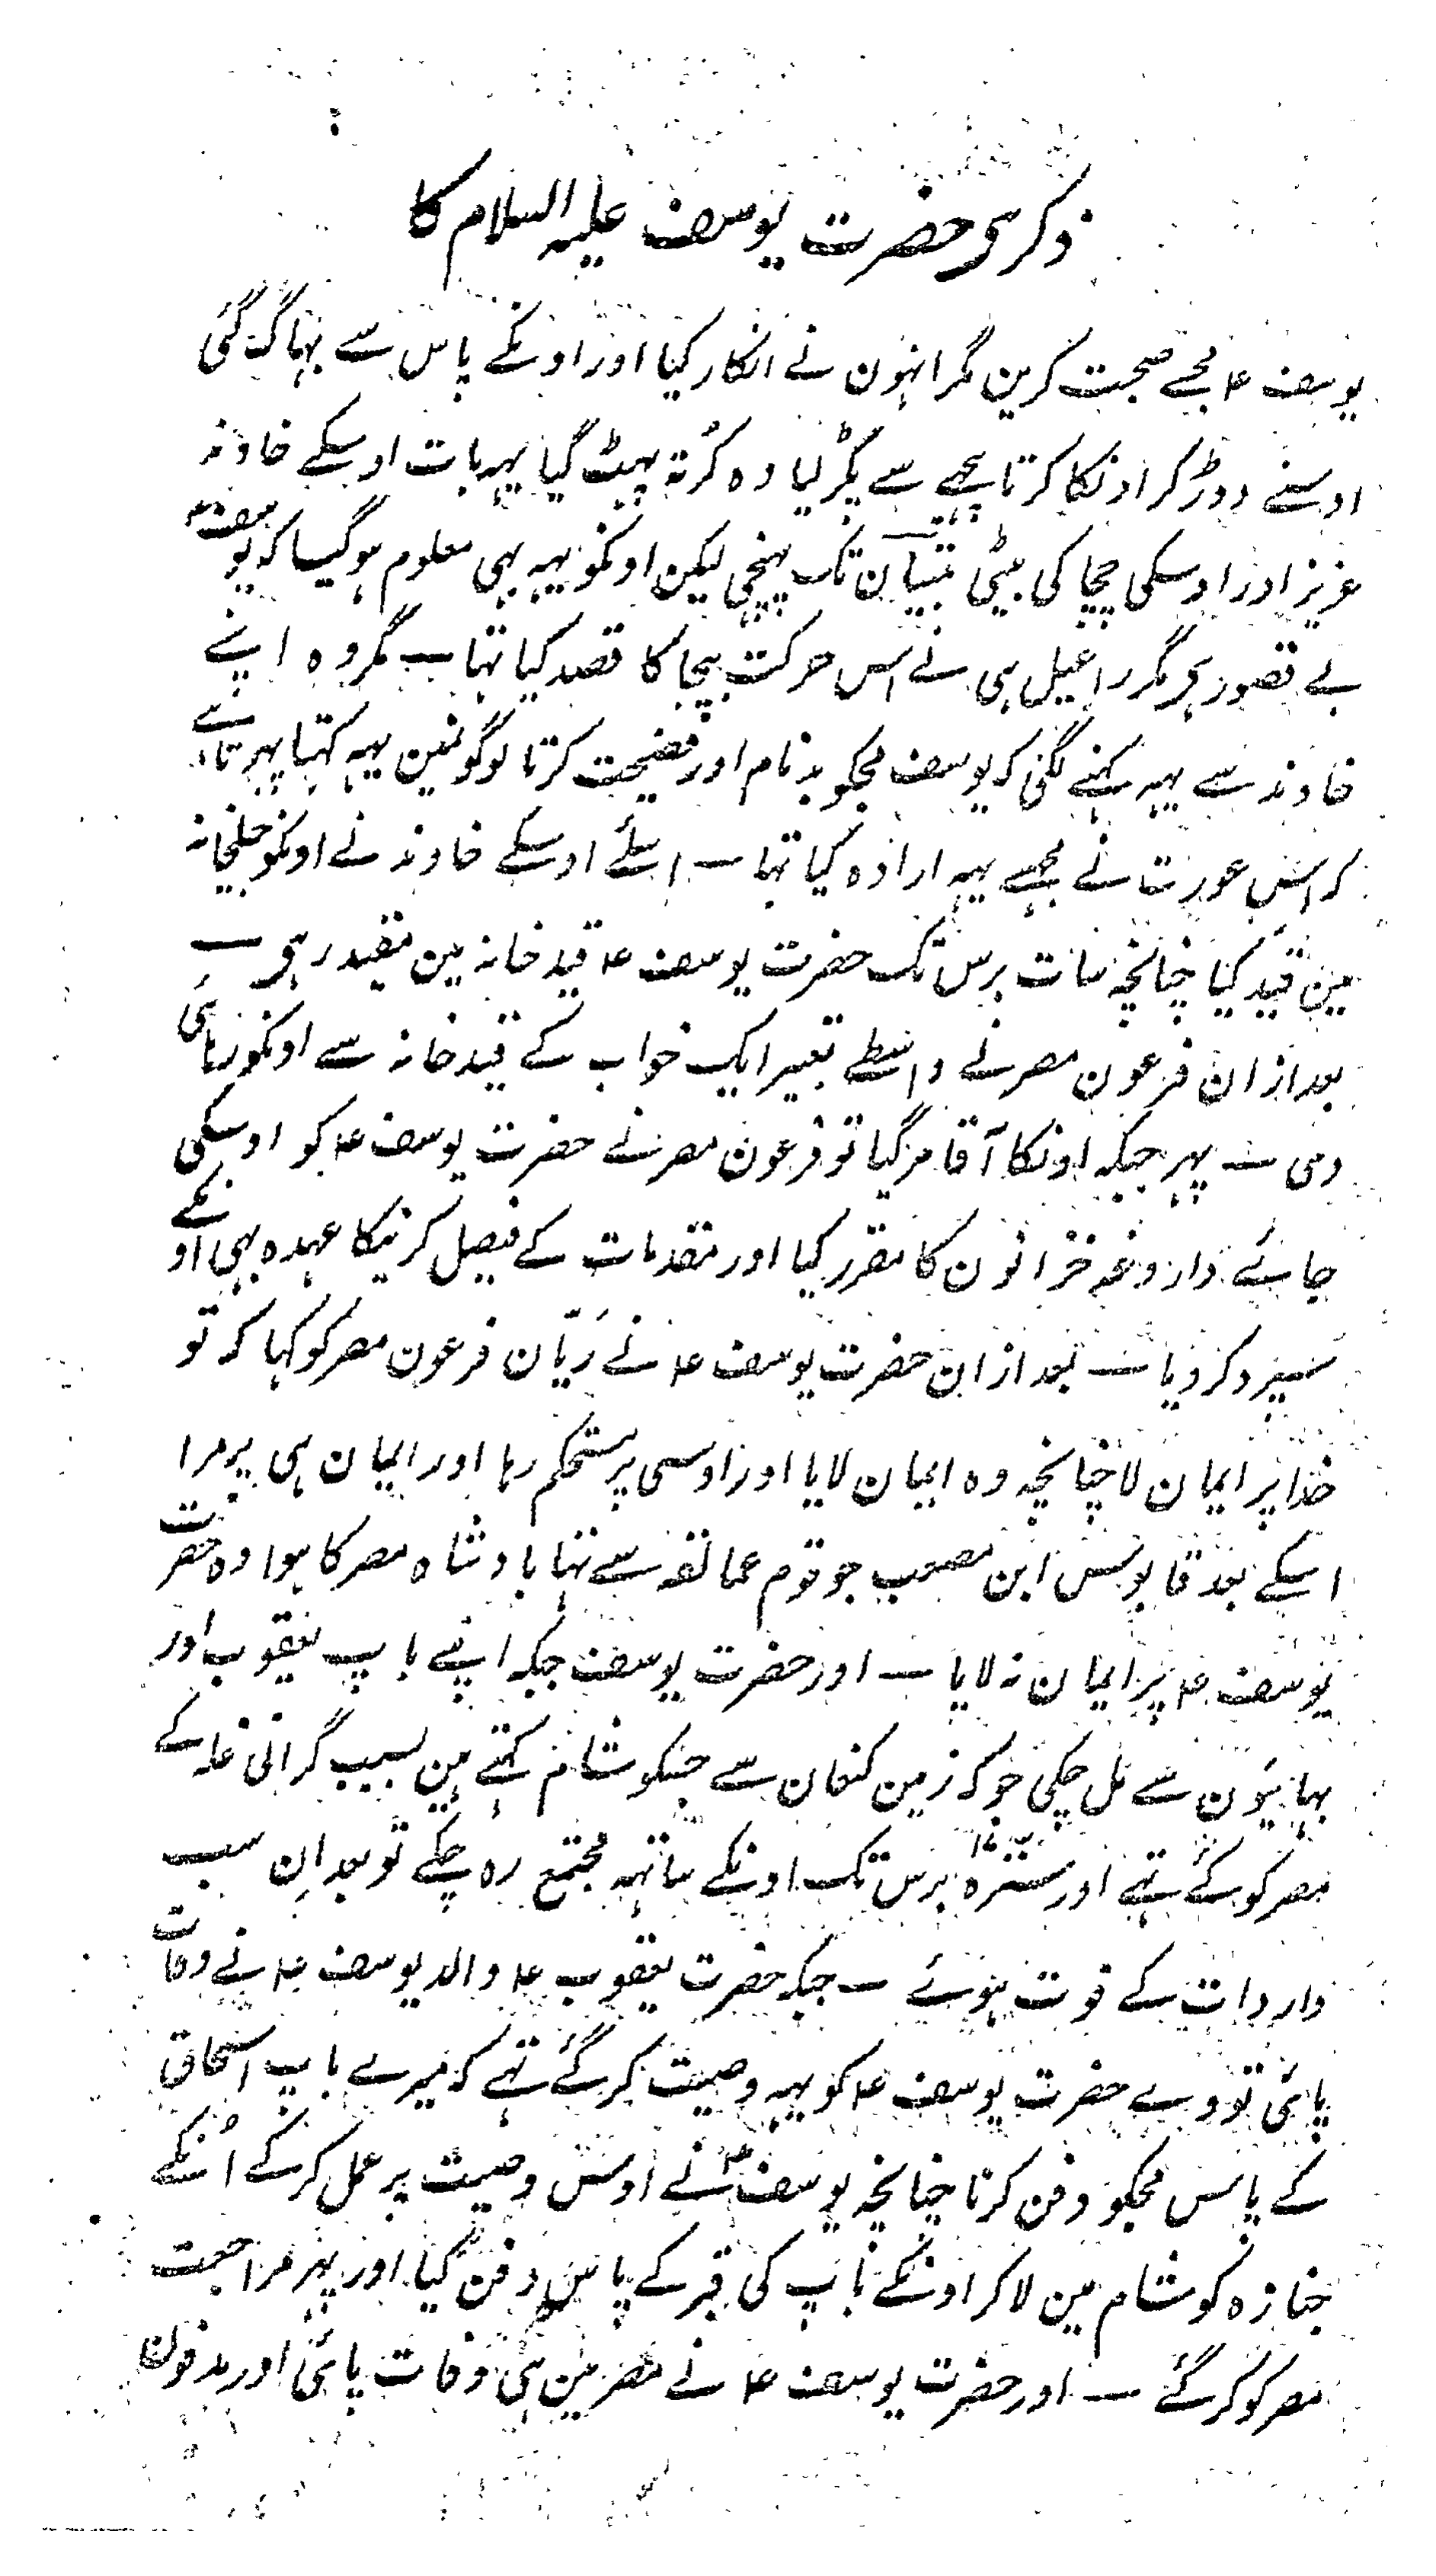 ذکر ہی حضرت یوسف علیہ السلام کا
یوسف ؑ مجسے صحبت کرین مگر انہون نے انکار کیا اور اونکے پاس سے بہاگ گئی
اوسنے دوڑکر اونکا کرتا پیچھے سے پکڑ لیا وہ کرتہ پہٹ گیا یہہ بات اوسکے خاوند
عزیز اور اوسکی چچا کی بیٹی تبیان تک پہنچی لیکن اونکو یہہ بہی معلوم ہوگیا کہ یوسف ؑ
بے قصور ہی مگر راعیل ہی نے اس حرکت بیجا کا قصد کیا تہا ـ مگر وہ اپنے
خاوند سے یہہ کہنے لگی کہ یوسف مجکو بدنام اور فضیحت کرتا لوگونمین یہہ کہتا پہرتا ہے
کہ اس عورت نے مجہسے یہہ ارادہ کیا تہا ـ اسلئے اوسکے خاوند نے اونکو جلخانہ
مین قید کیا چنانچہ سات برس تک حضرت یوسف ؑ قید خانہ مین مقید رہی ـ
بعد ازان فرعون مصر نے واسطے تعبیر ایک خواب کے قید خانہ سے اونکو رہائی
دی ـ پہر جبکہ اونکا آقا مرگیا تو فرعون مصر نے حضرت یوسف ؑ کو اوسکی
جائے داروغہ خزانون کا مقرر کیا اور مقدمات کے فیصل کرنیکا عہدہ بہی اونکے
سپرد کردیا ـ بعد ازان حضرت یوسف ؑ نے ریّان فرعون مصر کو کہا کہ تو
خدا پر ایمان لا چنانچہ وہ ایمان لایا اور اوسی پر مستحکم رہا اور ایمان ہی پر مرا
اسکے بعد قابوس ابن مصعب جو قوم عمالقہ سے تہا بادشاہ مصر کا ہوا وہ حضرت
یوسف ؑ پر ایمان نہ لایا ـ اور حضرت یوسف جبکہ اپنے باپ یعقوب اور
بہائیون سے مل چکی جو کہ زمین کنعان سے جسکو شام کہتے ہین بسبب گرانی غلہ کے
مصر کو گئے تہے اور سترہ ۱۷ برس تک اونکے ساتہہ مجتمع رہ چکے تو بعد اِن سب
واردات کے فوت ہوئے ـ جبکہ حضرت یعقوب ؑ والد یوسف ؑ نے وفات
پائی تو وے حضرت یوسف ؑ کو یہہ وصیت کر گئے تہے کہ میرے باپ اسحاق
کے پاس مجکو دفن کرنا چنانچہ یوسف ؑ نے اوس وصیت پر عمل کرکے اُنکے
جنازہ کو شام مین لاکر اونکے باپ کی قبر کے پاس دفن کیا اور پہر مراجعت
مصر کو کر گئے ـ اور حضرت یوسف ؑ نے مصر مین ہی وفات پائی اور مدفون